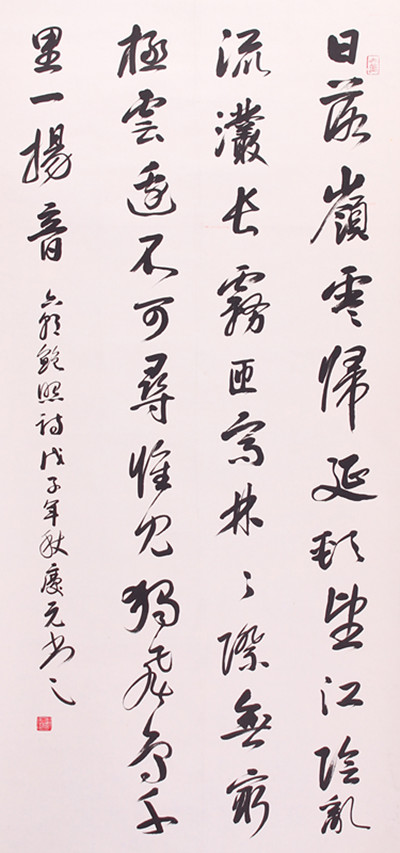 日落嶺雲歸延頸望江陰亂
流灇長霧匝高林〻際無窮
極雲邊不可尋惟見獨飛鳥千
里一揚音
六朝鮑照詩戊子年秋慶元書之